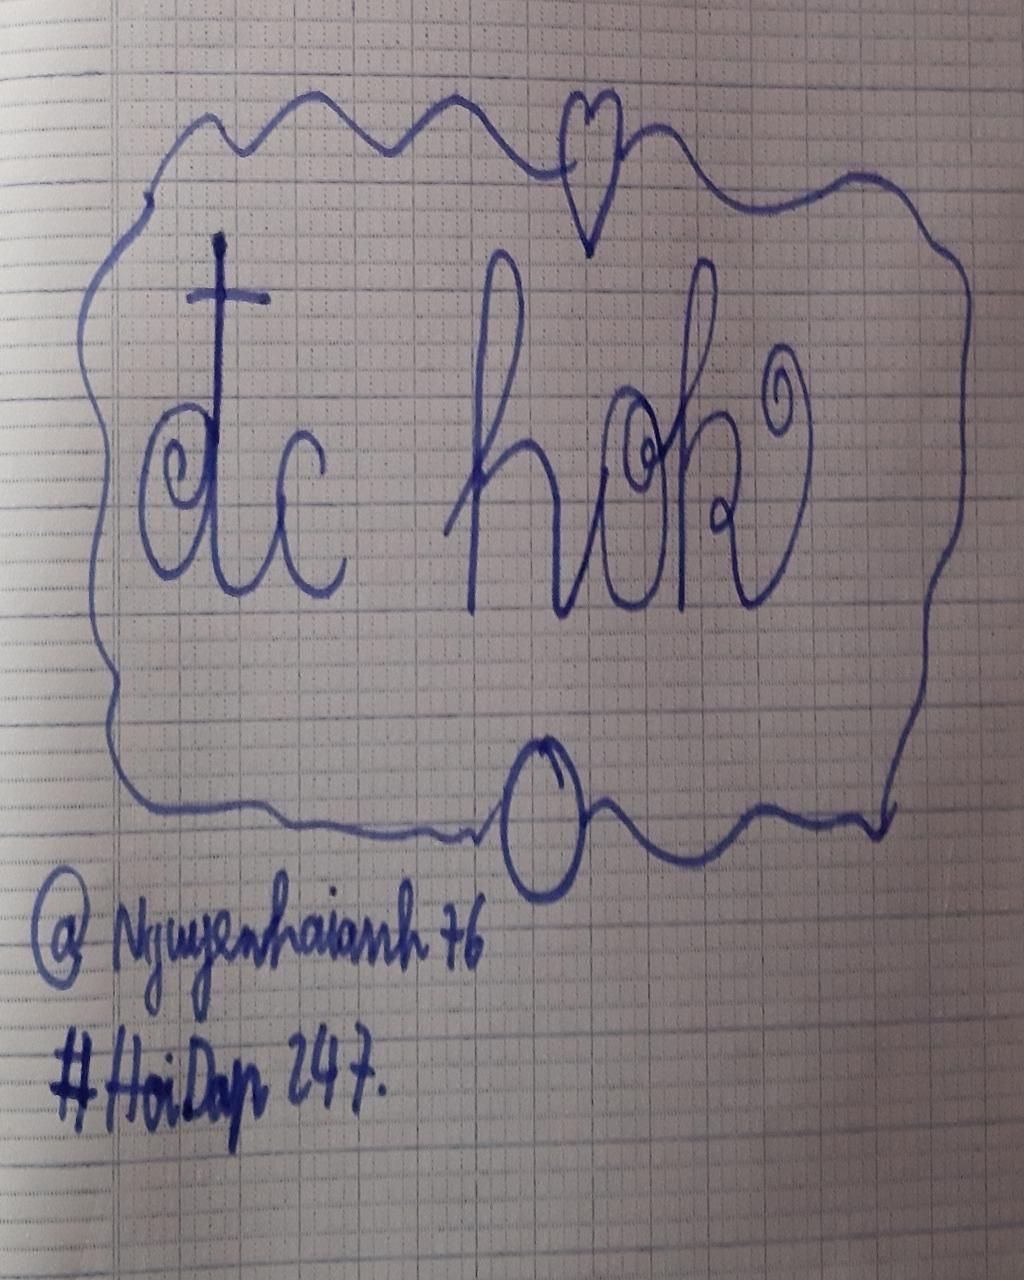 đc hok
@ Nguyenhaianh 76
# HoiDap 247.